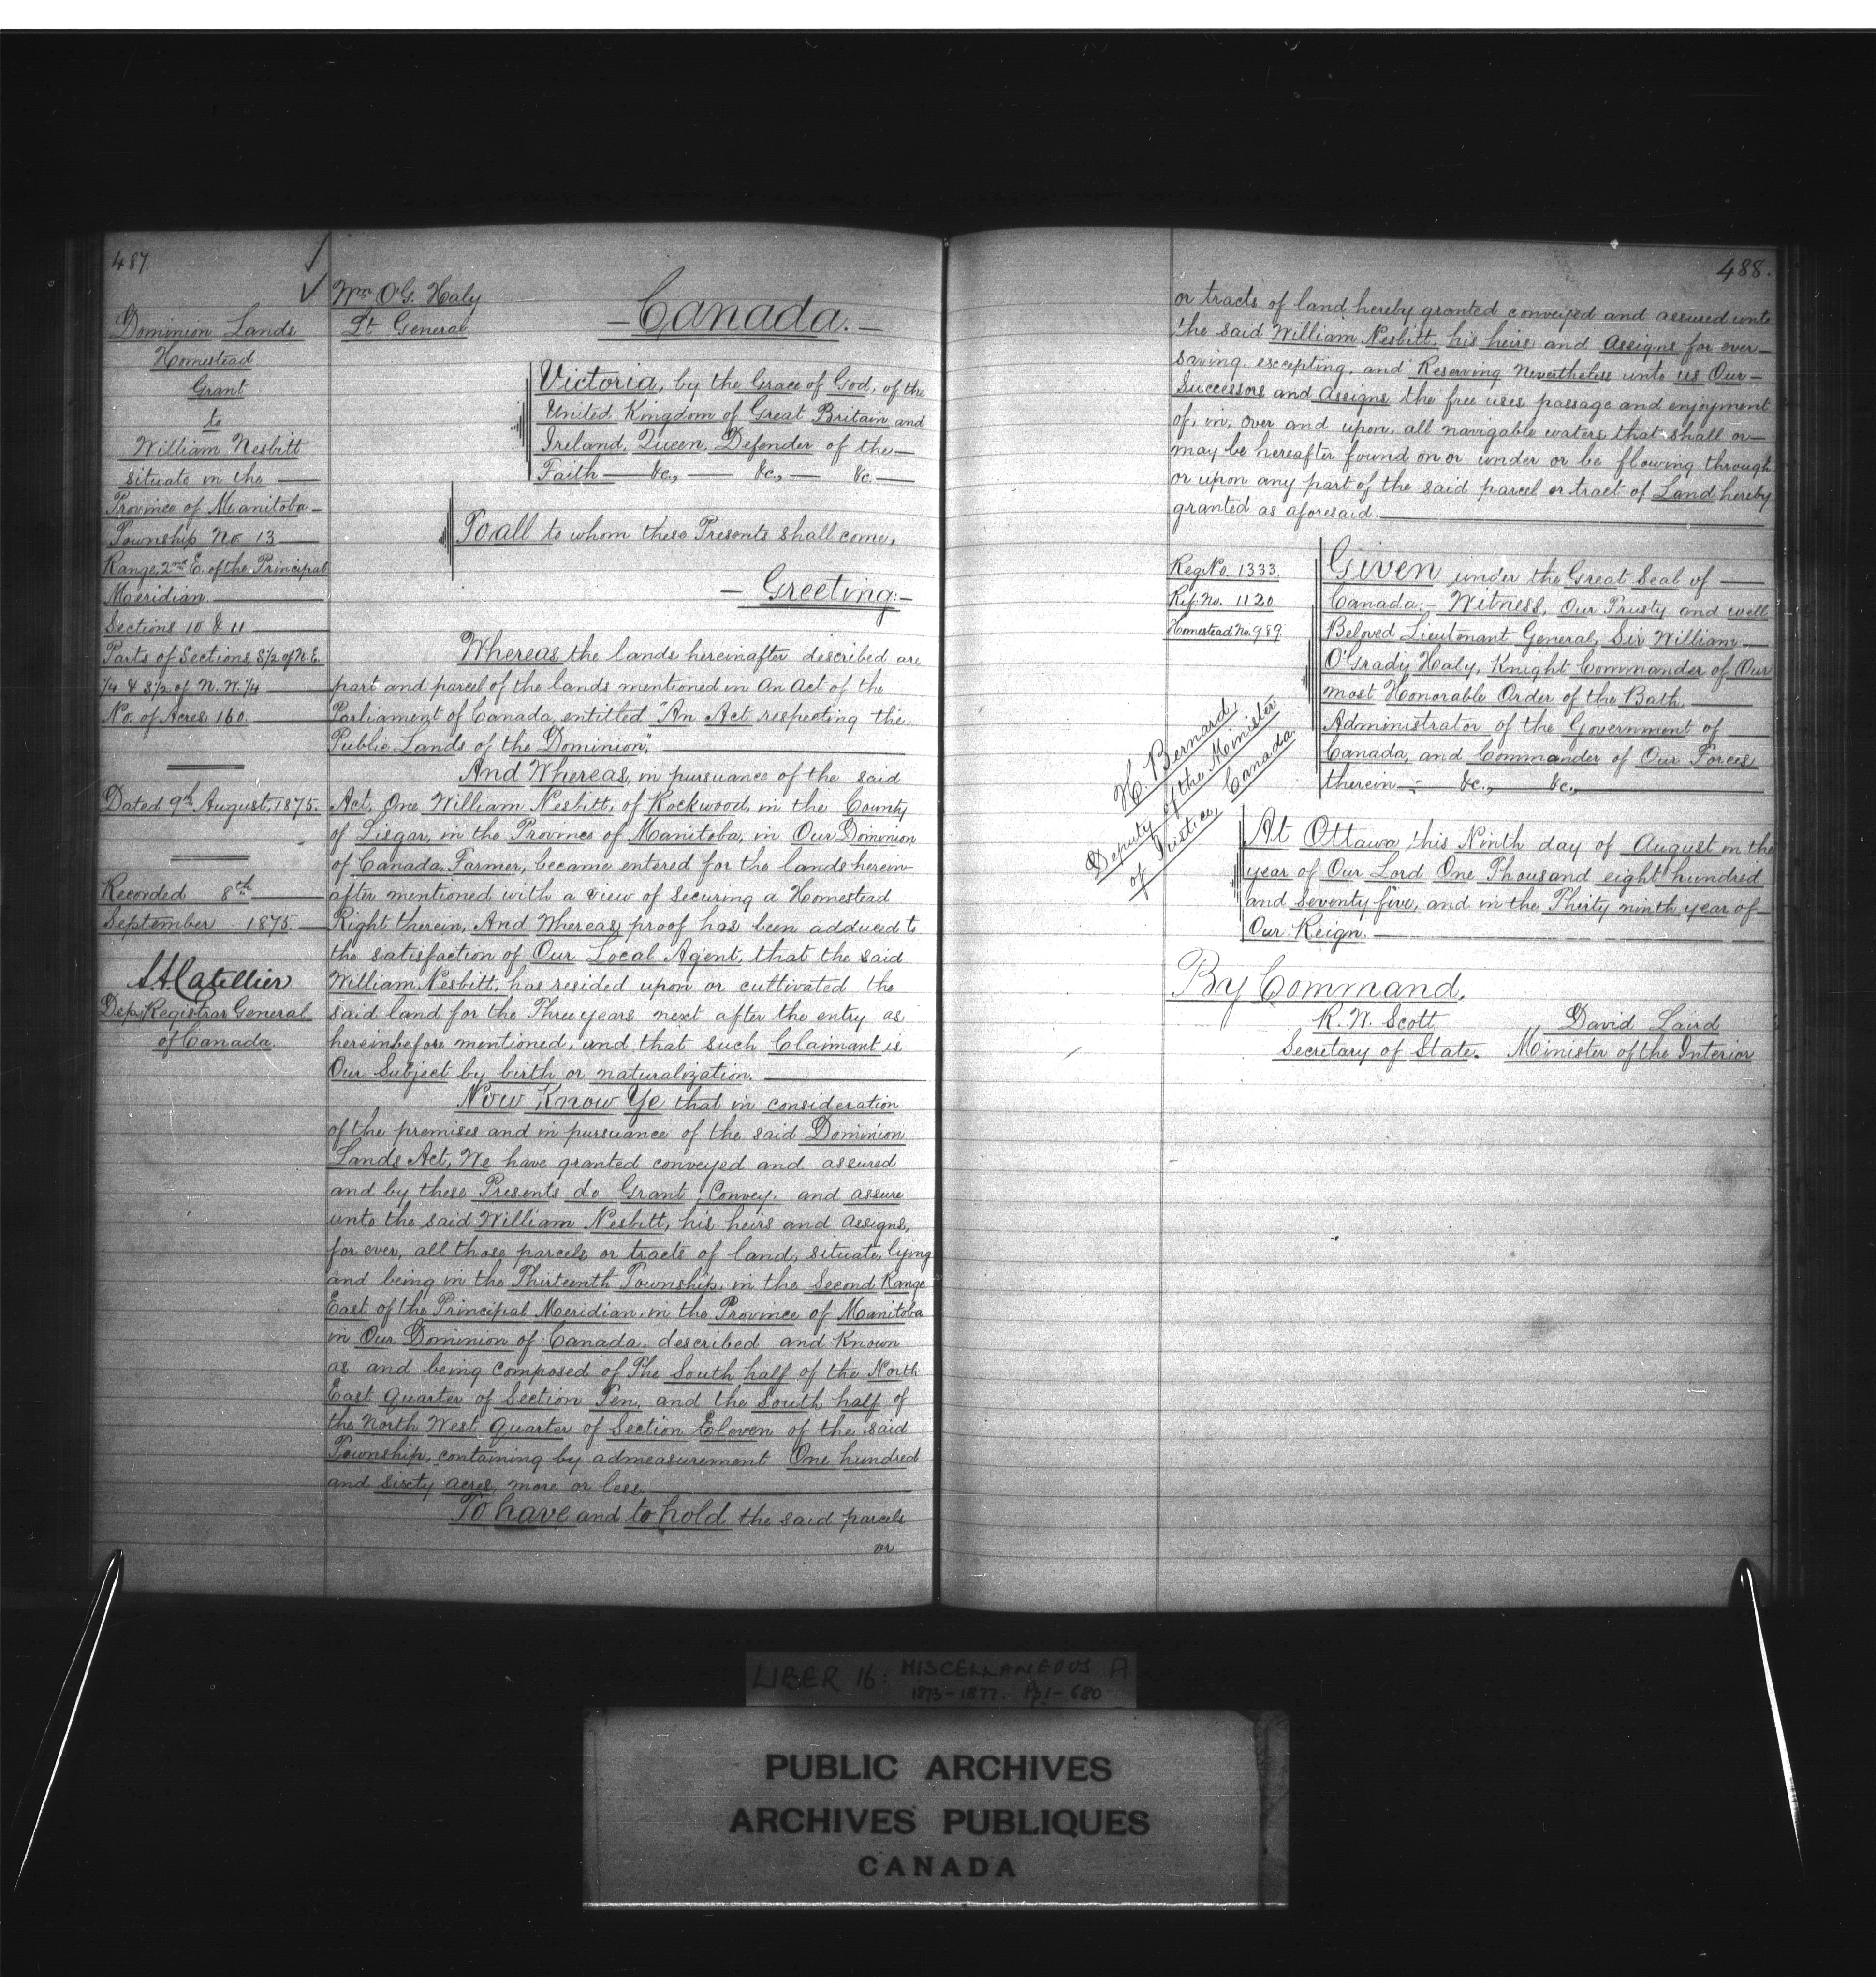 487.
Dominion Lands
Homestead
Grant
to
William Nesbitt
situate in the
Province of Manitoba
Township No. 13
Range, 2nd E. of the Principal
Meridian.
Sections 10 & 11
Parts of Sections, S1/2 of N.E.
1/4 & S1/2 of N.W. 1/4
No. of Acres 160.
Dated 9th August, 1875.
Recorded 8th
September 1875.
Dep. Registrar General
of Canada.
Wm O'G. Haly
Lt General
Canada.
Victoria, by the Grace of God, of the
United Kingdom of Great Britain and
Ireland, Queen, Defender of the
Faith &c., &c., &c.
To all to whom these Presents shall come,
Greeting:
Whereas the lands hereinafter described are
part and parcel of the lands mentioned in An Act of the
Parliament of Canada, entitled "An Act respecting the
Public Lands of the Dominion",
And Whereas, in pursuance of the said
Act, One William Nesbitt, of Rockwood, in the County
of Lisgar, in the Province of Manitoba, in Our Dominion
of Canada, Farmer, became entered for the lands herein
after mentioned with a view of securing a Homestead
Right therein, And Whereas, proof has been adduced to
the satisfaction of Our Local Agent, that the said
William Nesbitt, has resided upon or cultivated the
said land for the Three years next after the entry as
hereinbefore mentioned, and that such Claimant is
Our Subject by birth or naturalization.
Now Know Ye that in consideration
of the premises and in pursuance of the said Dominion
Lands Act, We have granted conveyed and assured
and by these Presents do Grant, Convey, and assure
unto the said William Nesbitt, his heirs and assigns,
for ever, all those parcels or tracts of land, situate, lying
and being in the Thirteenth Township, in the Second Range
East of the Principal Meridian, in the Province of Manitoba
in Our Dominion of Canada, described and Known
as and being composed of The South half of the North
East Quarter of Section Ten, and the South half of
the North West Quarter of Section Eleven of the said
Township, containing by admeasurement One hundred
and sixty acres, more or less.
To have and to hold the said parcels
or
488.
or tracts of land hereby granted conveyed and assured unto
the said William Nesbitt, his heirs and Assigns for ever
saving, excepting, and Reserving Nevertheless unto us Our
Successors and Assigns the free uses passage and enjoyment
of, in, over and upon, all navigable waters that shall or
may be hereafter found on or under or be flowing through
or upon any part of the said parcel or tract of Land hereby
granted as aforesaid.
Reg. No. 1333.
Ref. No. 1120.
Homestead No. 989.
H. Bernard,
Deputy of the Minister
of Justice, Canada.
Given under the Great Seal of
Canada:- Witness, Our Trusty and well
Beloved Lieutenant General, Sir William
O'Grady Haly, Knight Commander of Our
most Honorable Order of the Bath
Administrator of the Government of
Canada, and Commander of Our Forces
therein : &c., &c.,
At Ottawa, this Ninth day of August in the
year of Our Lord One Thousand eight hundred
and Seventy five, and in the Thirty ninth year of
Our Reign.
By Command,
R. W. Scott
Secretary of State.
David Laird
Minister of the Interior
LIBER 16: MISCELLANEOUS A
1873-1877. Pp 1-680
PUBLIC ARCHIVES
ARCHIVES PUBLIQUES
CANADA